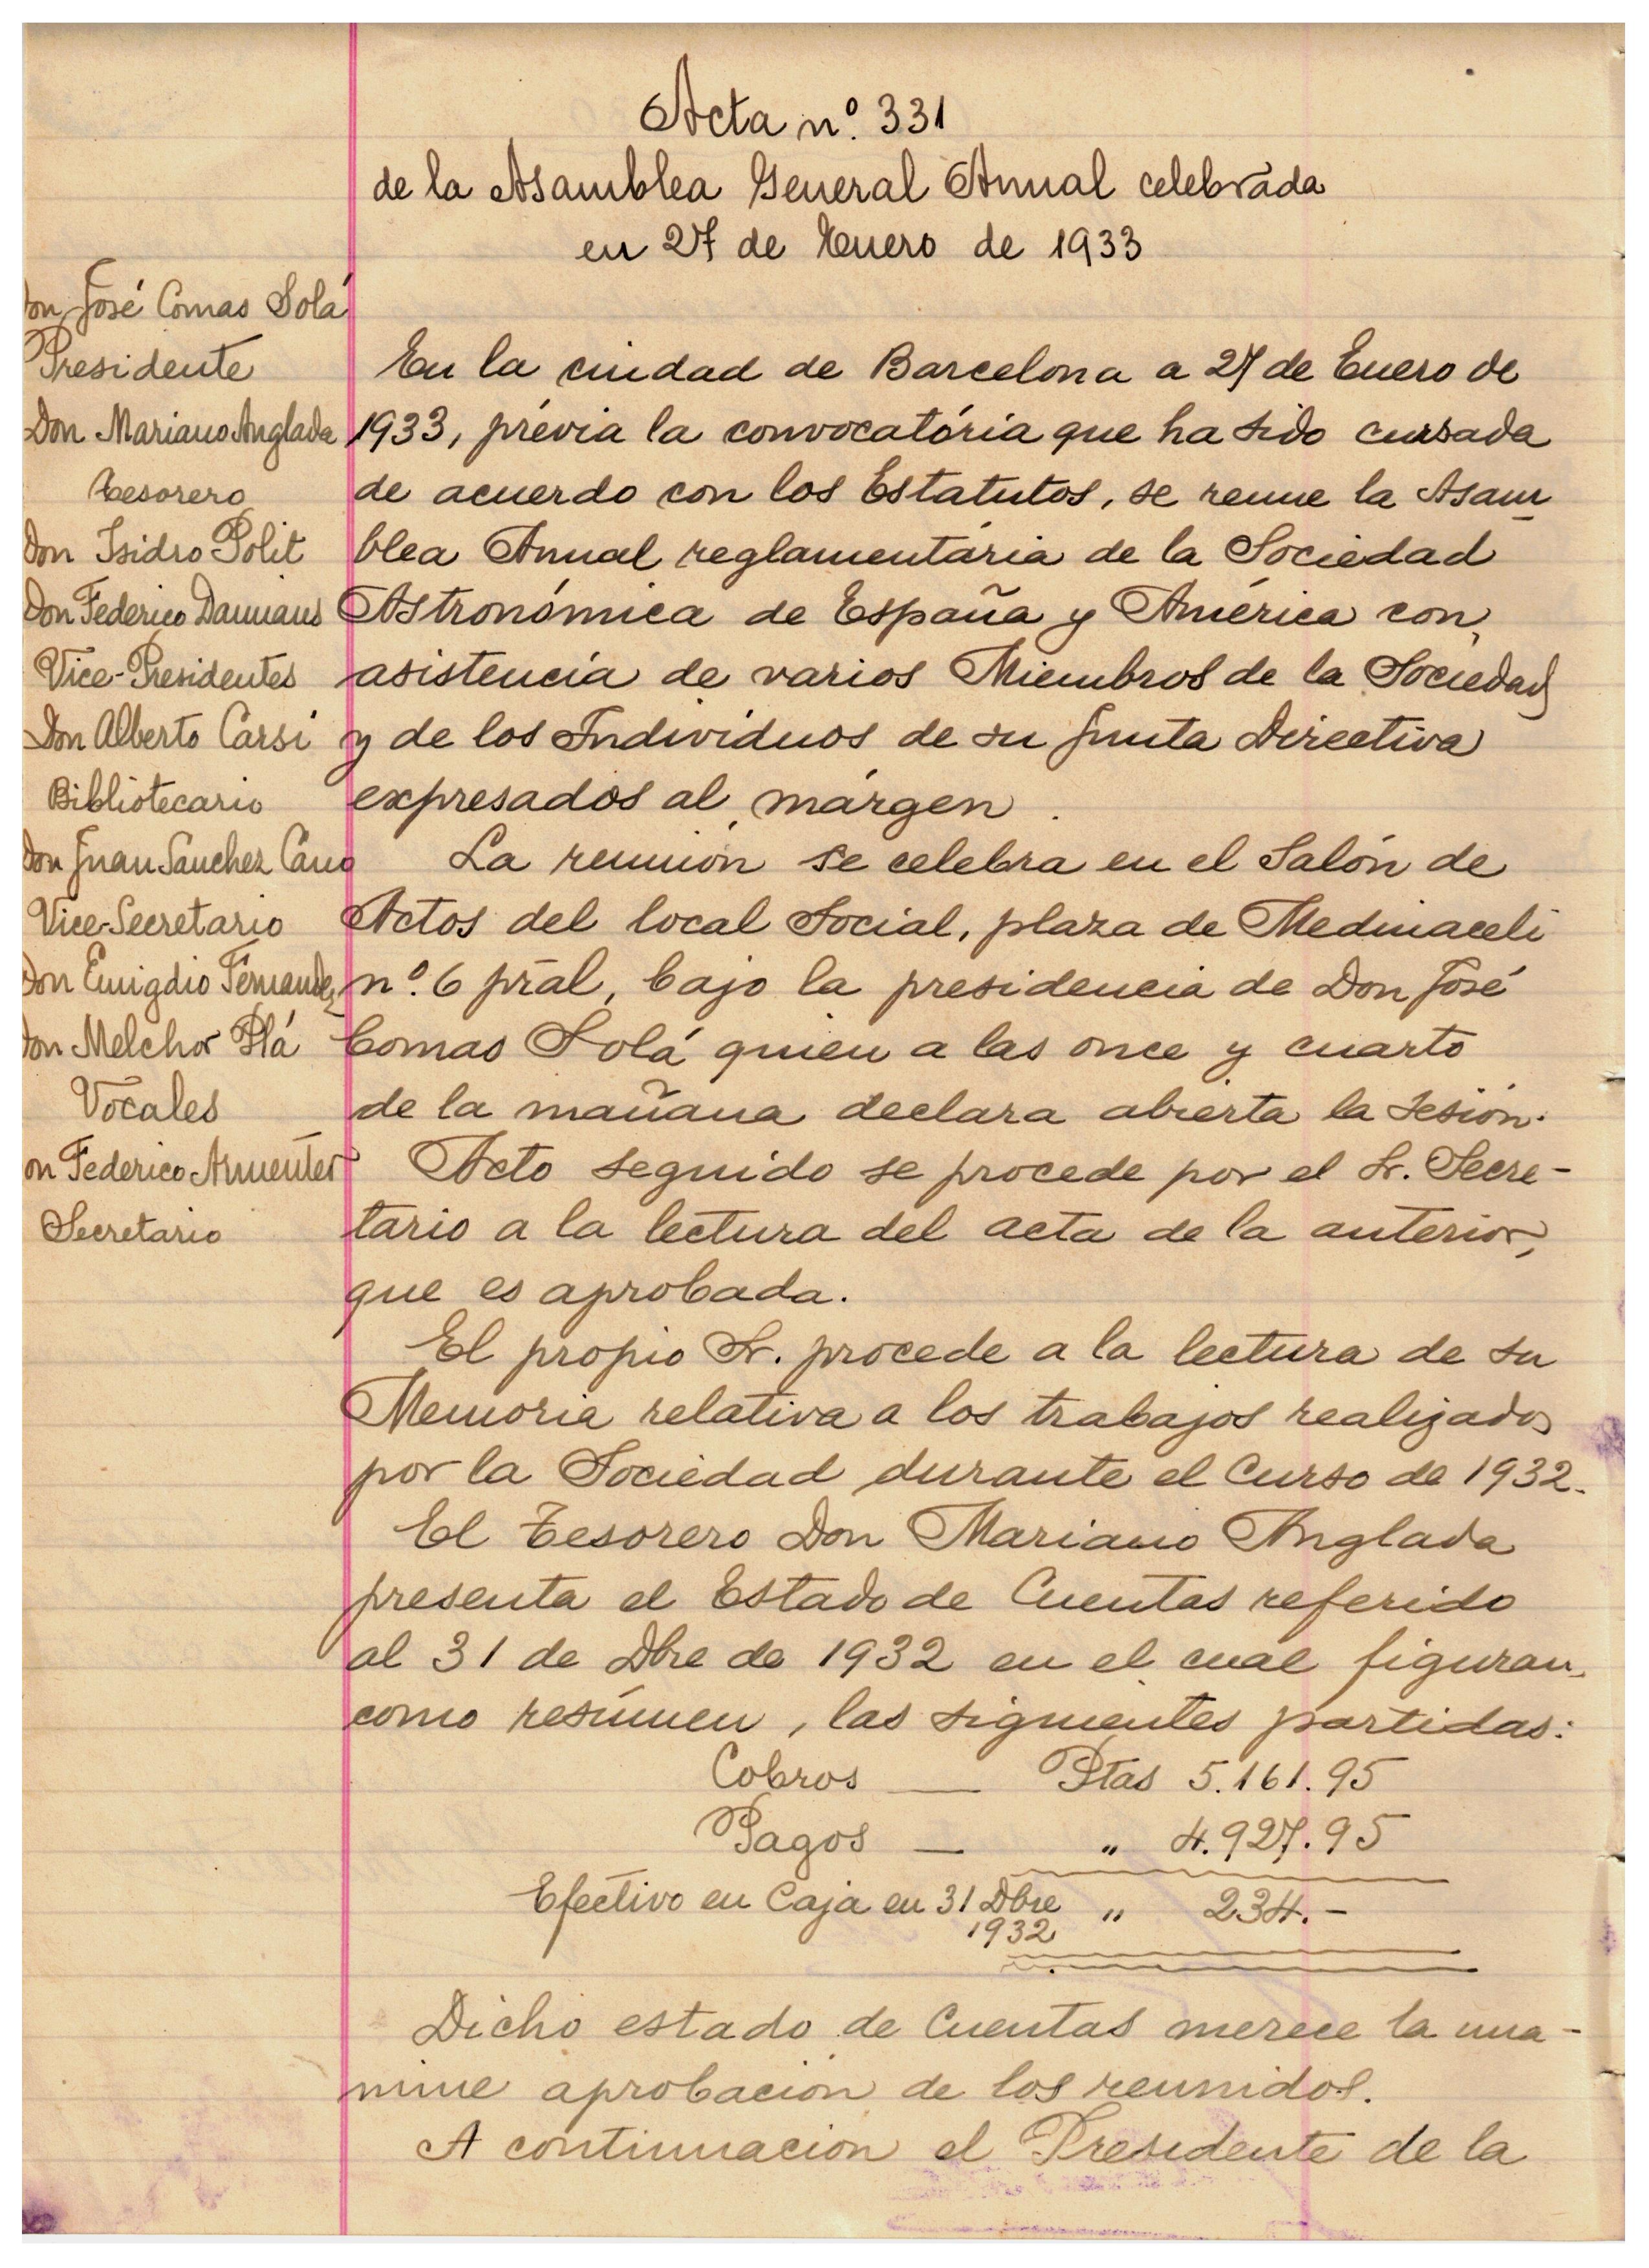 Acta nº. 331
de la Asamblea General Anual celebrada
en 27 de Enero de 1933
Don José Comas Solá
Presidente
Don Mariano Anglada
Tesorero
Don Isidro Polit
Don Federico Damians
Vice-Presidentes
Don Alberto Carsi
Bibliotecario
Don Juan Sanchez Cano
Vice-Secretario
Don Emigdio Fernandez
Don Melchor Plá
Vocales
on Federico Armenter
Secretario
En la ciudad de Barcelona a 27 de Enero de
1933, prévia la convocatória que ha sido cursada
de acuerdo con los Estatutos, se reune la Asam
blea Anual reglamentária de la Sociedad
Astronómica de España y América con
asistencia de varios Miembros de la Sociedad
y de los Individuos de su Junta Directiva
expresados al márgen.
La reunión se celebra en el Salón de
Actos del local Social, plaza de Medinaceli
nº. 6 pral, bajo la presidencia de Don José
Comas Solá quien a las once y cuarto
de la mañana declara abierta la sesión.
Acto seguido se procede por el Sr. Secre-
tario a la lectura del acta de la anterior,
que es aprobada.
El propio Sr. procede a la lectura de su
Memoria relativa a los trabajos realizados
por la Sociedad durante el Curso de 1932.
El Tesorero Don Mariano Anglada
presenta el Estado de Cuentas referido
al 31 de Dbre de 1932 en el cual figuran
como resúmen, las siguientes partidas:
Cobros — Ptas 5.161.95
Pagos — " 4.927.95
Efectivo en Caja en 31 Dbre 1932 " 234.-
Dicho estado de Cuentas merece la una-
nime aprobación de los reunidos.
A continuación el Presidente de la